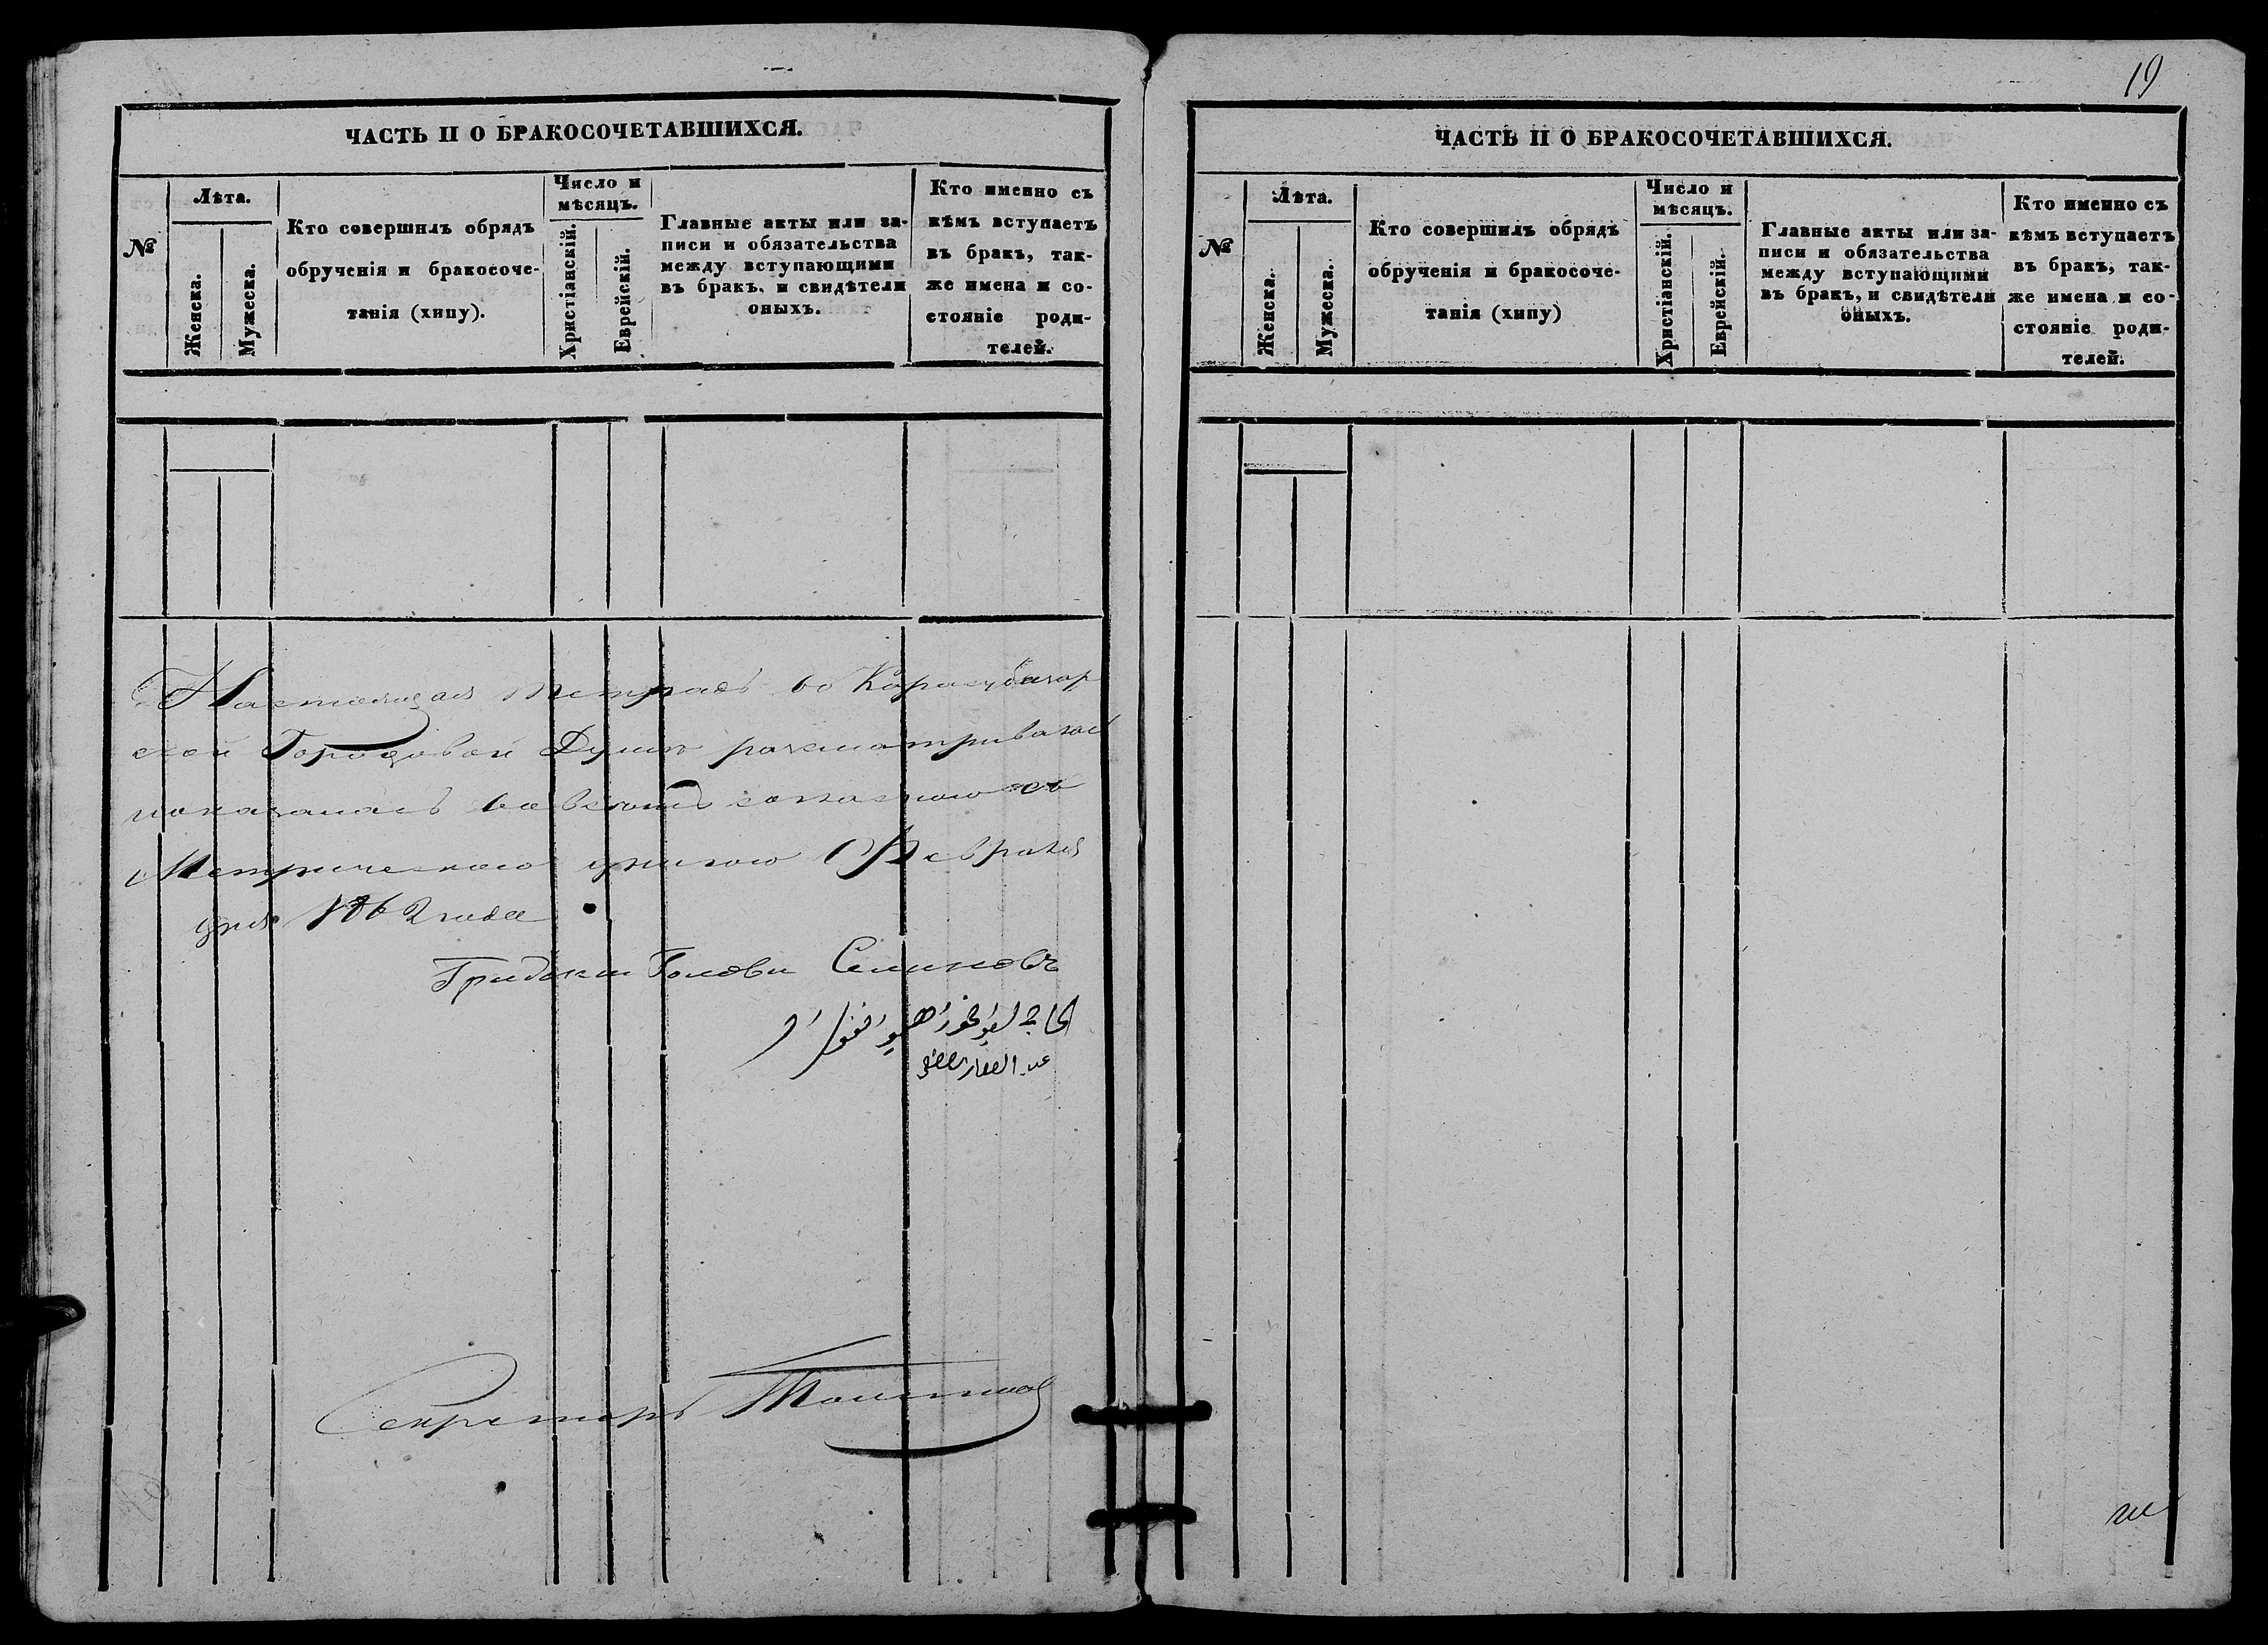 ЧАСТЬ II О БРАКОСОЧЕТАВШИХСЯ.
№
Лѣта.
Женска.
Мужеска.
Кто совершилъ обрядъ
обрученія и бракосоче-
танія (хипу).
Число и
мѣсяцъ.
Христіанскій.
Еврейскій.
Главные акты или за-
писи и обязательства
между вступающими
въ бракъ, и свидѣтели
оныхъ.
Кто именно съ
кѣмъ вступаетъ
въ бракъ, так-
же имена и со-
стояніе роди-
телей.
Настоящая тетрадь во Карасубазар
ской Городовой Думѣ разсматривалась
показалась во всемъ согласною съ
Метрическою книгою Февраля
дня 1862 года
Градскій Голова
Секретарь
19
ЧАСТЬ II О БРАКОСОЧЕТАВШИХСЯ.
№
Лѣта.
Женска.
Мужеска.
Кто совершилъ обрядъ
обрученія и бракосоче-
танія (хипу)
Число и
мѣсяцъ.
Христіанскій.
Еврейскій.
Главные акты или за-
писи и обязательства
между вступающими
въ бракъ, и свидѣтели
оныхъ.
Кто именно съ
кѣмъ вступаетъ
въ бракъ, так-
же имена и со-
стояніе роди-
телей.